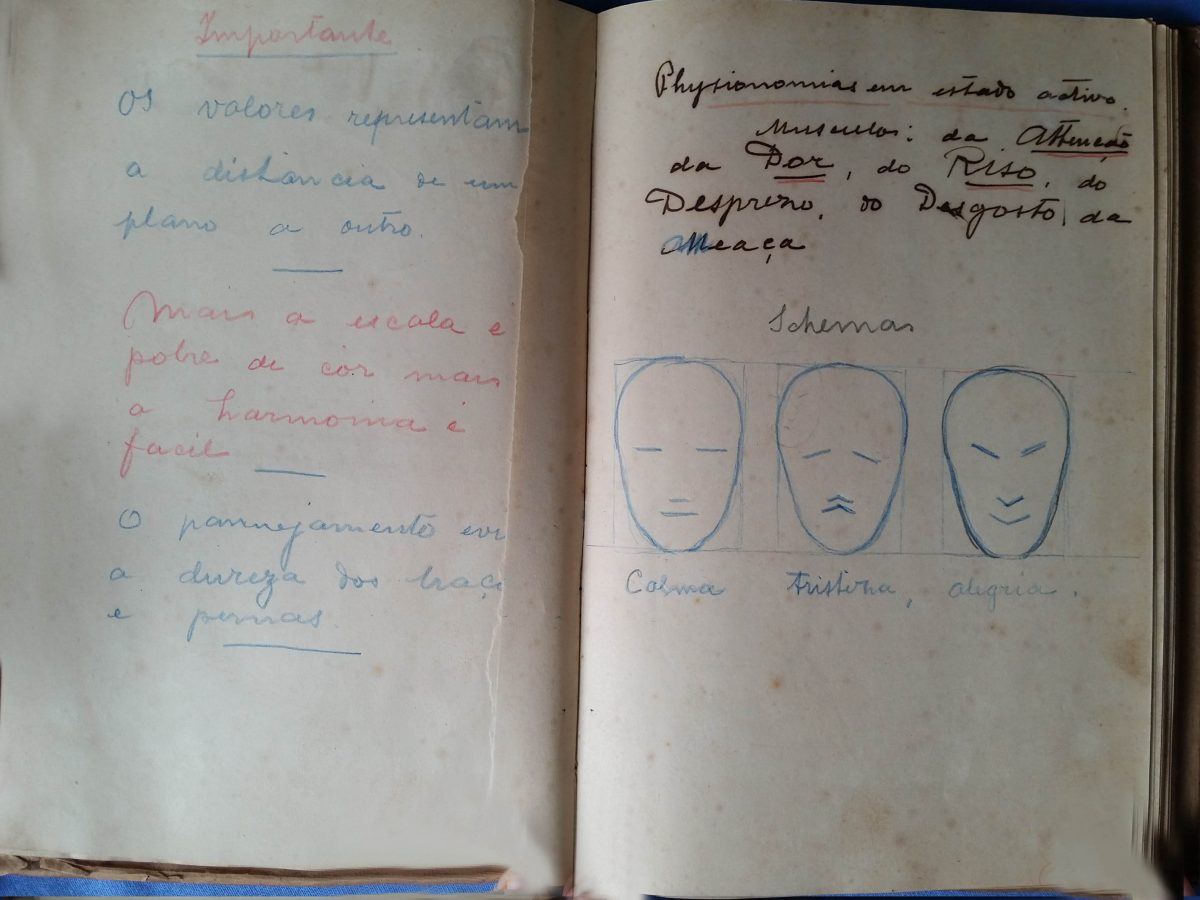 Importante
Os valores representam
a distância de um
plano a outro.
Mais a escala é
pobre de côr mais
a harmonia é
facil
O pannejamento evi
a dureza dos braço
e pernas
Physionomias em estado activo.
Musculos: da Attenção
da Dor, do Riso, do
Desprezo, do Desgosto, da
Ameaça
Schemas
Calma Tristeza, alegria.